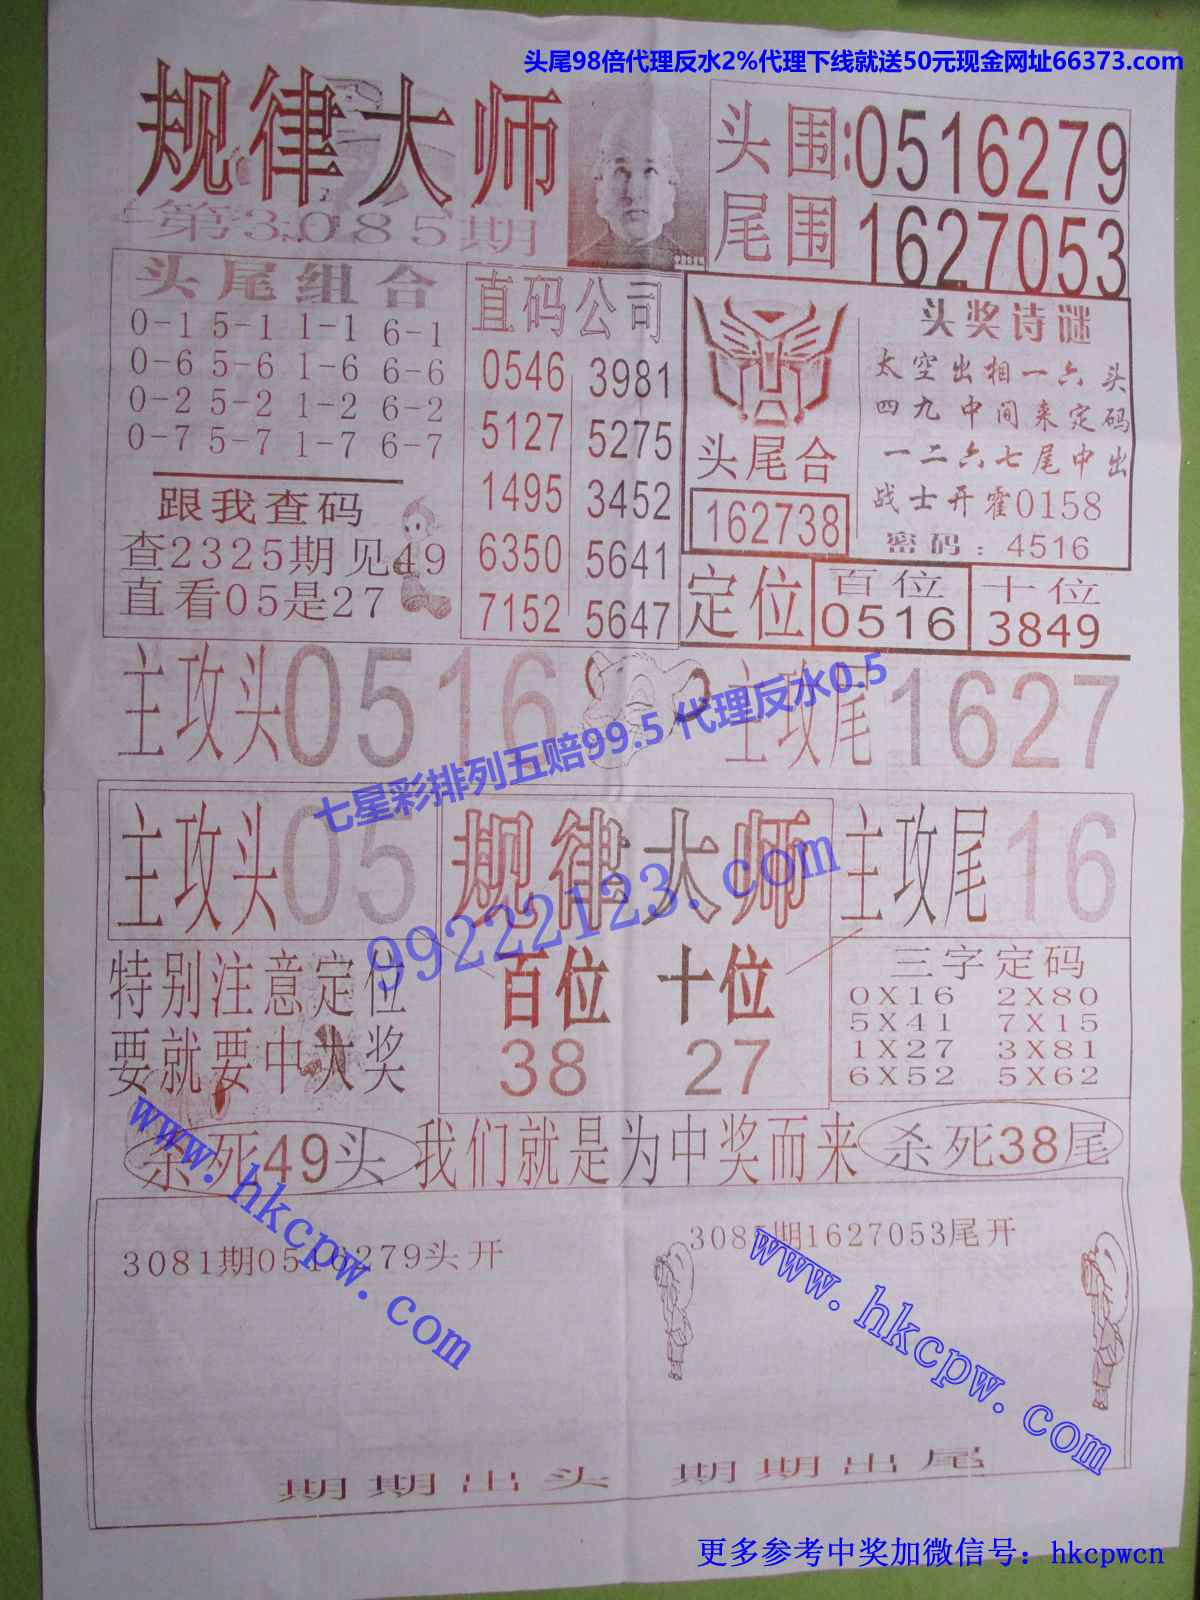 头尾98倍代理反水2%代理下线就送50元现金网址66373.com
规律大师
第3085期
头围:0516279
尾围 1627053
头尾组合
0-1 5-1 1-1 6-1
0-6 5-6 1-6 6-6
0-2 5-2 1-2 6-2
0-7 5-7 1-7 6-7
跟我查码
查2325期见49
直看05是27
直码公司
0546 3981
5127 5275
1495 3452
6350 5641
7152 5647
头尾合
162738
头奖诗谜
太空出相一六头
四九中间来定码
一二六七尾中出
战士开霍0158
密码：4516
定位
百位
0516
十位
3849
主攻头0516
主攻尾1627
七星彩排列五赔99.5 代理反水0.5
99222123.com
主攻头05
规律大师
主攻尾16
特别注意定位
要就要中大奖
百位 十位
38 27
三字定码
0X16 2X80
5X41 7X15
1X27 3X81
6X52 5X62
杀死49头
我们就是为中奖而来
杀死38尾
www.hkcpw.com
3081期0516279头开
3085期1627053尾开
www.hkcpw.com
期期出头 期期出尾
更多参考中奖加微信号：hkcpwcn